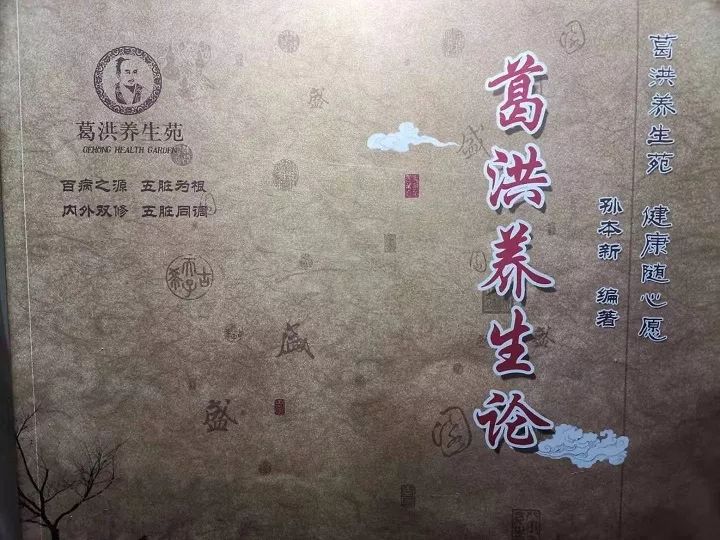 葛洪养生苑
GEHONG HEALTH GARDEN
百病之源 五脏为根
内外双修 五脏同调
葛洪养生苑 健康随心愿
孙本新 编著
葛洪养生论
盛
盛
盛
盛